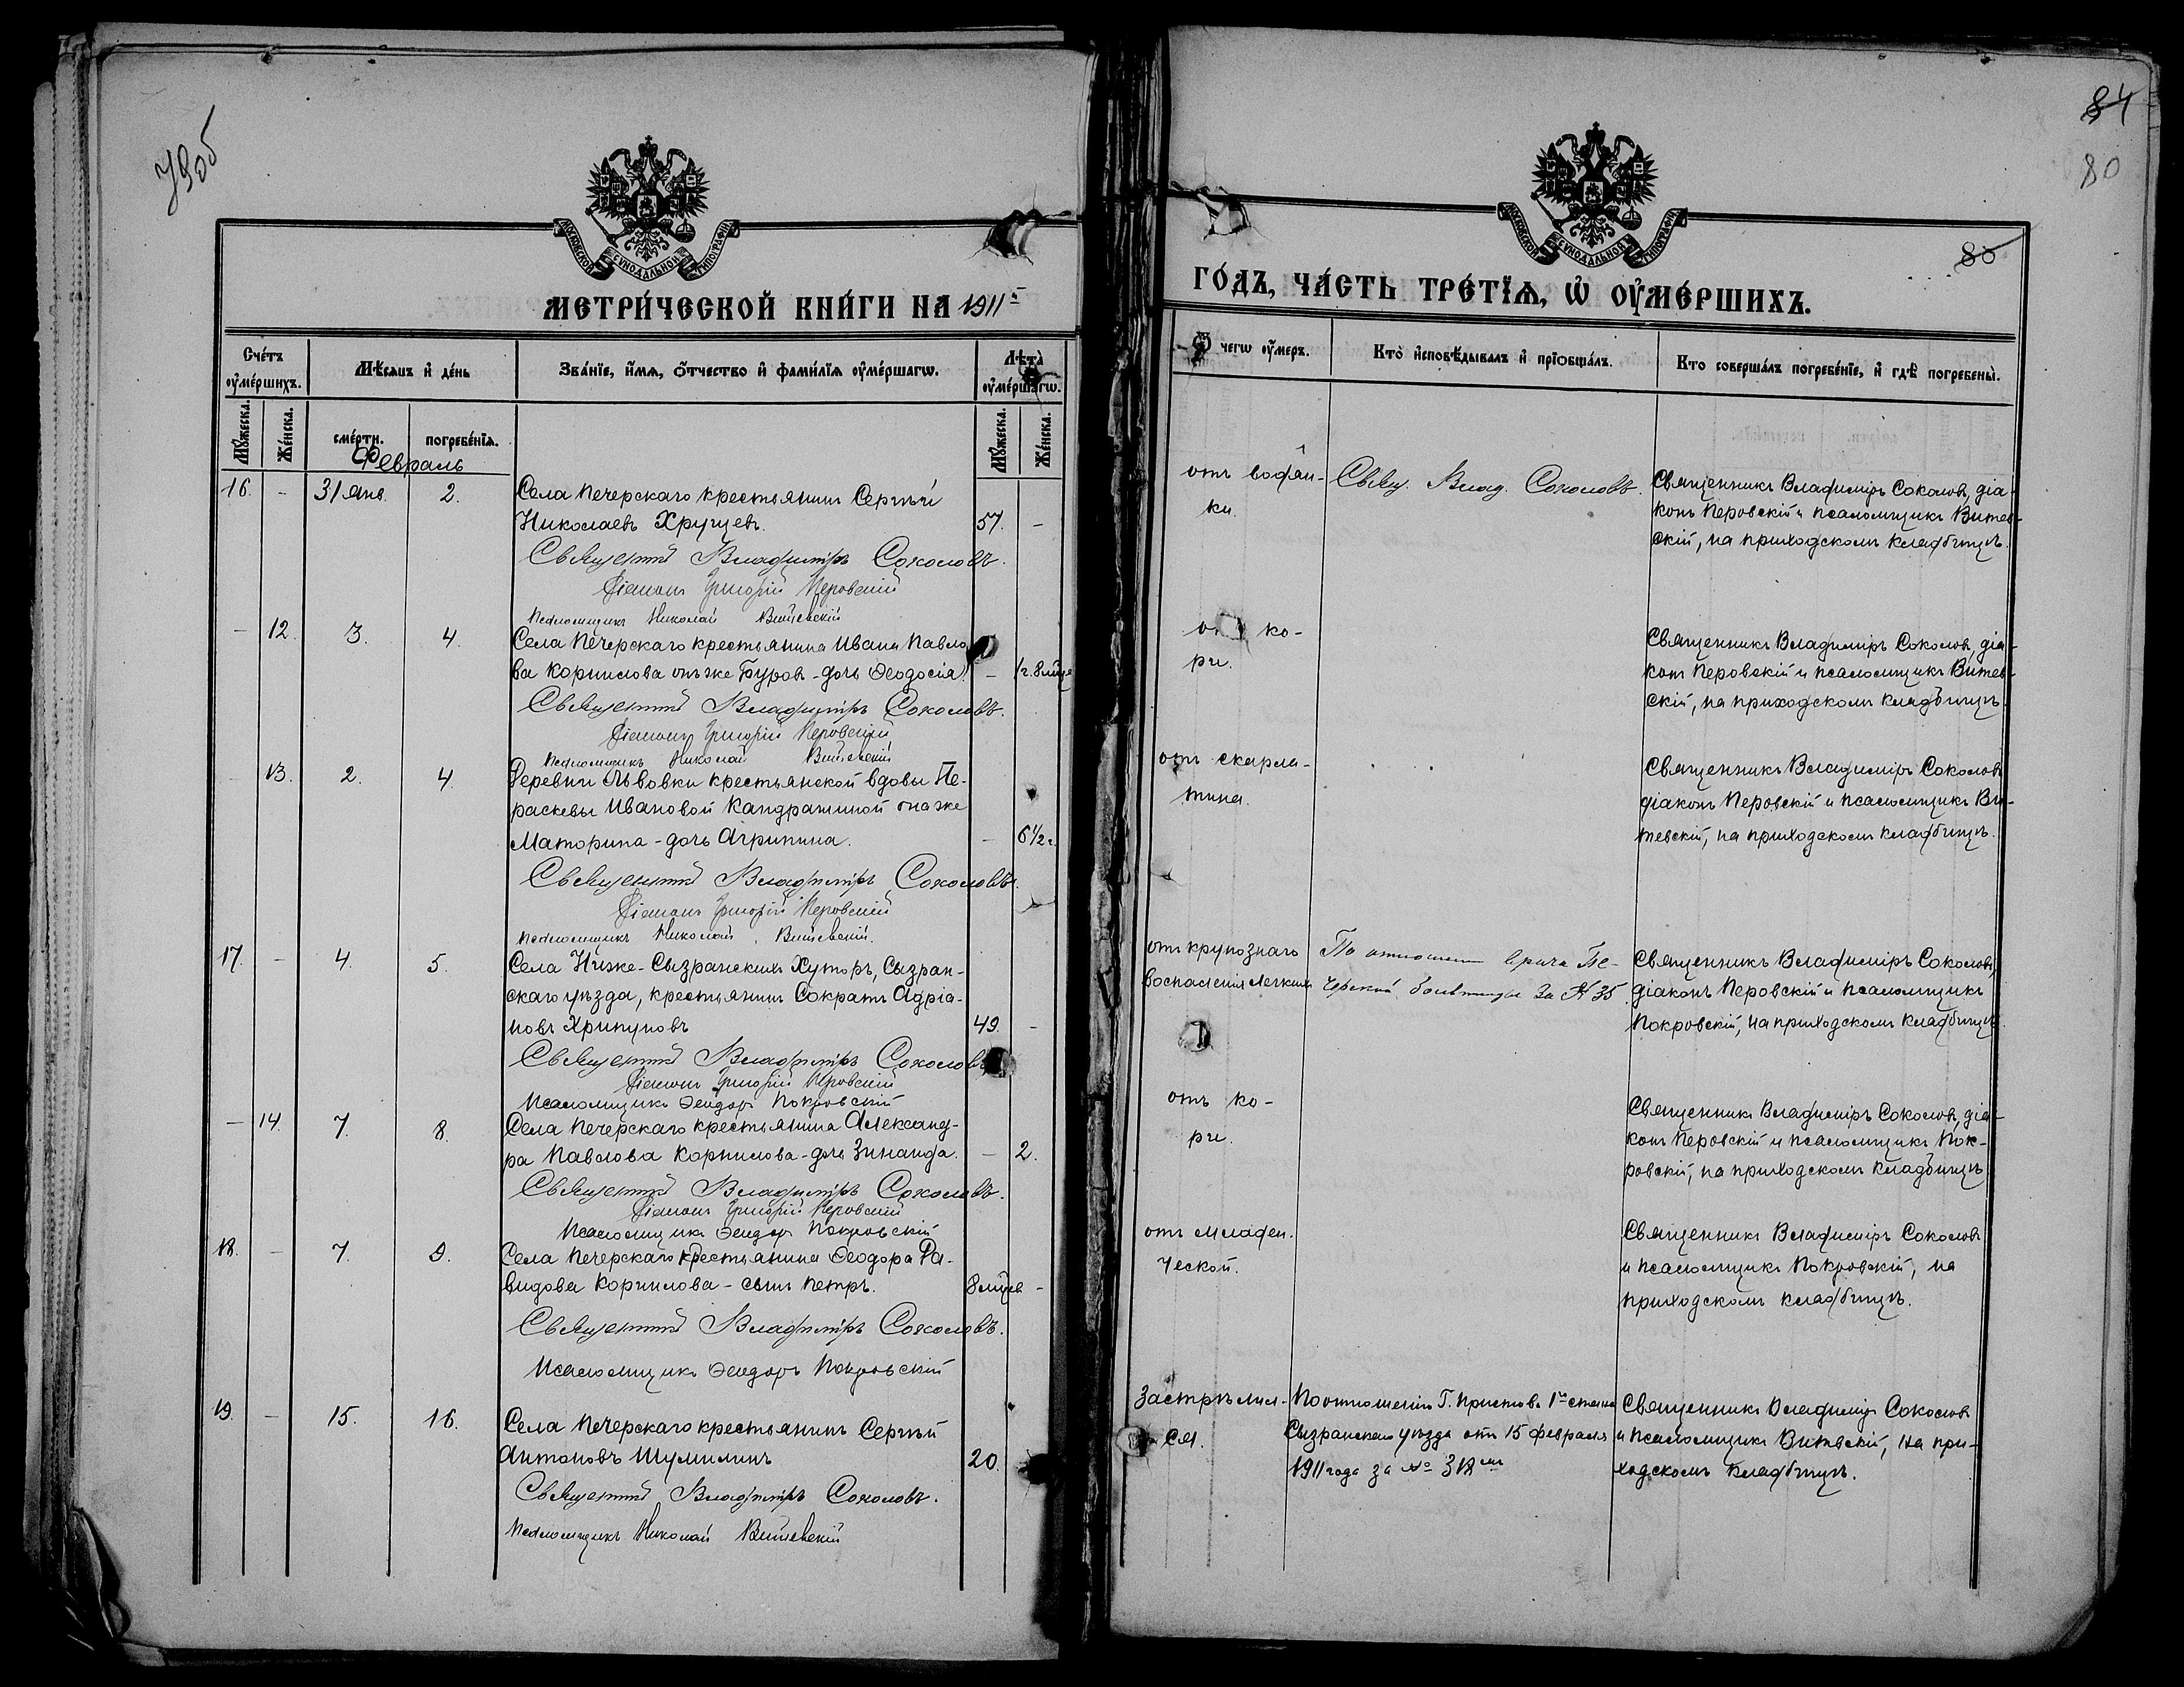 79об
МОСКОВСКОЙ СУНОДАЛЬНОЙ ТИПОГРАФІИ
МЕТРИ́ЧЕСКОЙ КНИ́ГИ НА 1911й
Сче́тъ ᲂу҆ме́ршихъ.
Мѣ́сяцъ и҆ де́нь
Зва́нїе, и҆́мѧ, ѻ҆́тчество и҆ фами́лїѧ ᲂу҆ме́ршагѡ.
Лѣ́та ᲂу҆ме́ршагѡ.
Мꙋ́жеска.
Же́нска.
сме́рти.
погребе́нїѧ.
Мꙋ́жеска.
Же́нска.
Февраль
16. - 31 янв. 2. Села Печерскаго крестьянинъ Сергѣй
Николаевъ Хрущевъ. 57. -
Священникъ Владимiръ Соколовъ.
Дiаконъ Григорiй Перовскiй
Псаломщикъ Николай Витевскiй
- 12. 3. 4. Села Печерскаго крестьянина Ивана Павло-
ва Корнилова онъ же Буровъ - дочь Ѳеодосiя. - 1г. 8 мцев
Священникъ Владимiръ Соколовъ.
Дiаконъ Григорiй Перовскiй
Псаломщикъ Николай Витевскiй
- 13. 2. 4. Деревни Львовки крестьянской вдовы Па-
раскевы Ивановой Кандрашиной она же
Маторина - дочь Агрипина. - 6 1/2 г.
Священникъ Владимiръ Соколовъ.
Дiаконъ Григорiй Перовскiй
Псаломщикъ Николай Витевскiй.
17. - 4. 5. Села Ниже-Сызранскихъ Хуторъ, Сызран-
скаго уѣзда, крестьянинъ Сократъ Адрiа-
новъ Хрипуновъ 49. -
Священникъ Владимiръ Соколовъ
Дiаконъ Григорiй Перовскiй
Псаломщикъ Ѳеодоръ Покровскiй
- 14. 7. 8. Села Печерскаго крестьянина Александ-
ра Павлова Корнилова - дочь Зинаида. - 2.
Священникъ Владимiръ Соколовъ.
Дiаконъ Григорiй Перовскiй
Псаломщикъ Ѳеодоръ Покровскiй
18. - 7. 9. Села Печерскаго крестьянина Ѳеодора Да-
видова Корнилова - сынъ Петръ. 8 мцев -
Священникъ Владимiръ Соколовъ.
Псаломщикъ Ѳеодоръ Покровскiй
19. - 15. 16. Села Печерскаго крестьянинъ Сергѣй
Антоновъ Шумилинъ 20.
Священникъ Владимiръ Соколовъ.
Псаломщикъ Николай Витевскiй
84
80
80
МОСКОВСКОЙ СУНОДАЛЬНОЙ ТИПОГРАФІИ
ГО́ДЪ, ЧА́СТЬ ТРЕ́ТЇѦ, Ѡ҆ ᲂУ҆МЕ́РШИХЪ.
Ѿ чегѡ ᲂу҆́меръ.
Кто̀ и҆сповѣ́дывалъ и҆ прїѡбща́лъ.
Кто соверша́лъ погребе́нїе, и҆ гдѣ̀ погребены̀.
отъ водян-
ки.
Свящ. Влад. Соколовъ.
Священникъ Владимiръ Соколовъ, дiа-
конъ Перовскiй и псаломщикъ Витев-
скiй, на приходскомъ кладбищѣ.
отъ ко-
ри.
Священникъ Владимiръ Соколовъ, дiа-
конъ Перовскiй и псаломщикъ Витев-
скiй, на приходскомъ кладбищѣ.
отъ скарла-
тина.
Священникъ Владимiръ Соколовъ
дiаконъ Перовскiй и псаломщикъ Ви-
тевскiй, на приходскомъ кладбищѣ.
отъ крупознаго
воспаленiя легкихъ
По отношенiю врача Пе-
черской больницы за № 35.
Священникъ Владимiръ Соколовъ,
дiаконъ Перовскiй и псаломщикъ
Покровскiй, на приходскомъ кладбищѣ.
отъ ко-
ри.
Священникъ Владимiръ Соколовъ, дiа-
конъ Перовскiй и псаломщикъ Пок-
ровскiй, на приходскомъ кладбищѣ
отъ младен.
ческой.
Священникъ Владимiръ Соколовъ
и псаломщикъ Покровскiй, на
приходскомъ кладбищѣ.
Застрѣлил-
ся.
По отношенiю Г. Пристава 1го стана
Сызранскаго уѣзда отъ 15 февраля
1911 года за № 318мъ
Священникъ Владимiръ Соколовъ
и псаломщикъ Витевскiй, на при-
ходскомъ кладбищѣ.